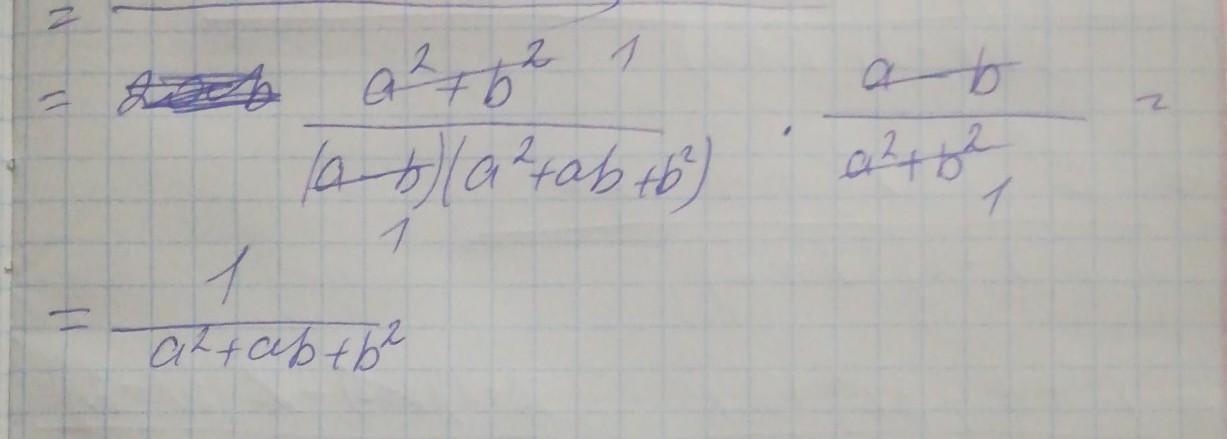 =
= a²+b² 1 / (a-b)(a²+ab+b²) 1 · a-b / a²+b² 1 =
= 1 / a²+ab+b²